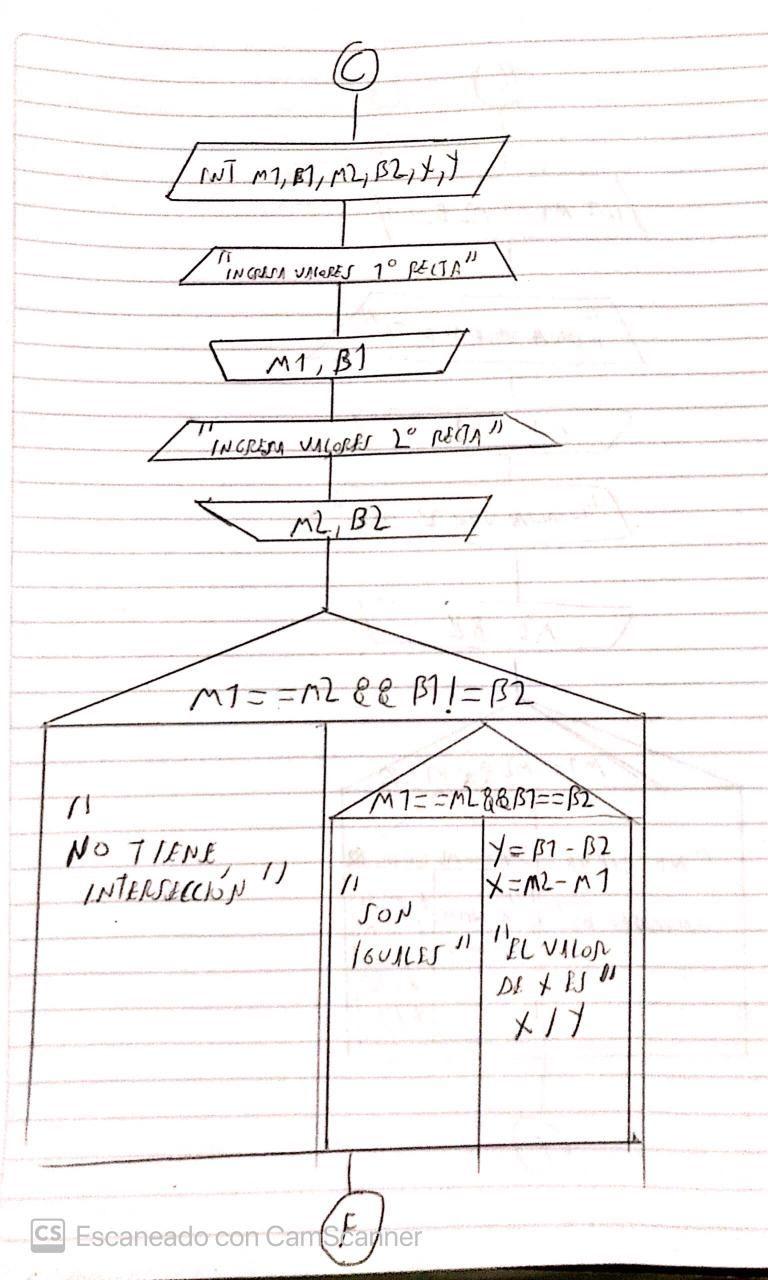 C
INT M1, B1, M2, B2, X, Y
"INGRESA VALORES 1° RECTA"
M1, B1
"INGRESA VALORES 2° RECTA"
M2, B2
M1==M2 && B1!=B2
"
NO TIENE
INTERSECCIÓN"
M1==M2&&B1==B2
"
SON
IGUALES"
Y=B1-B2
X=M2-M1
"EL VALOR
DE X ES"
X/Y
F
CS Escaneado con CamScanner